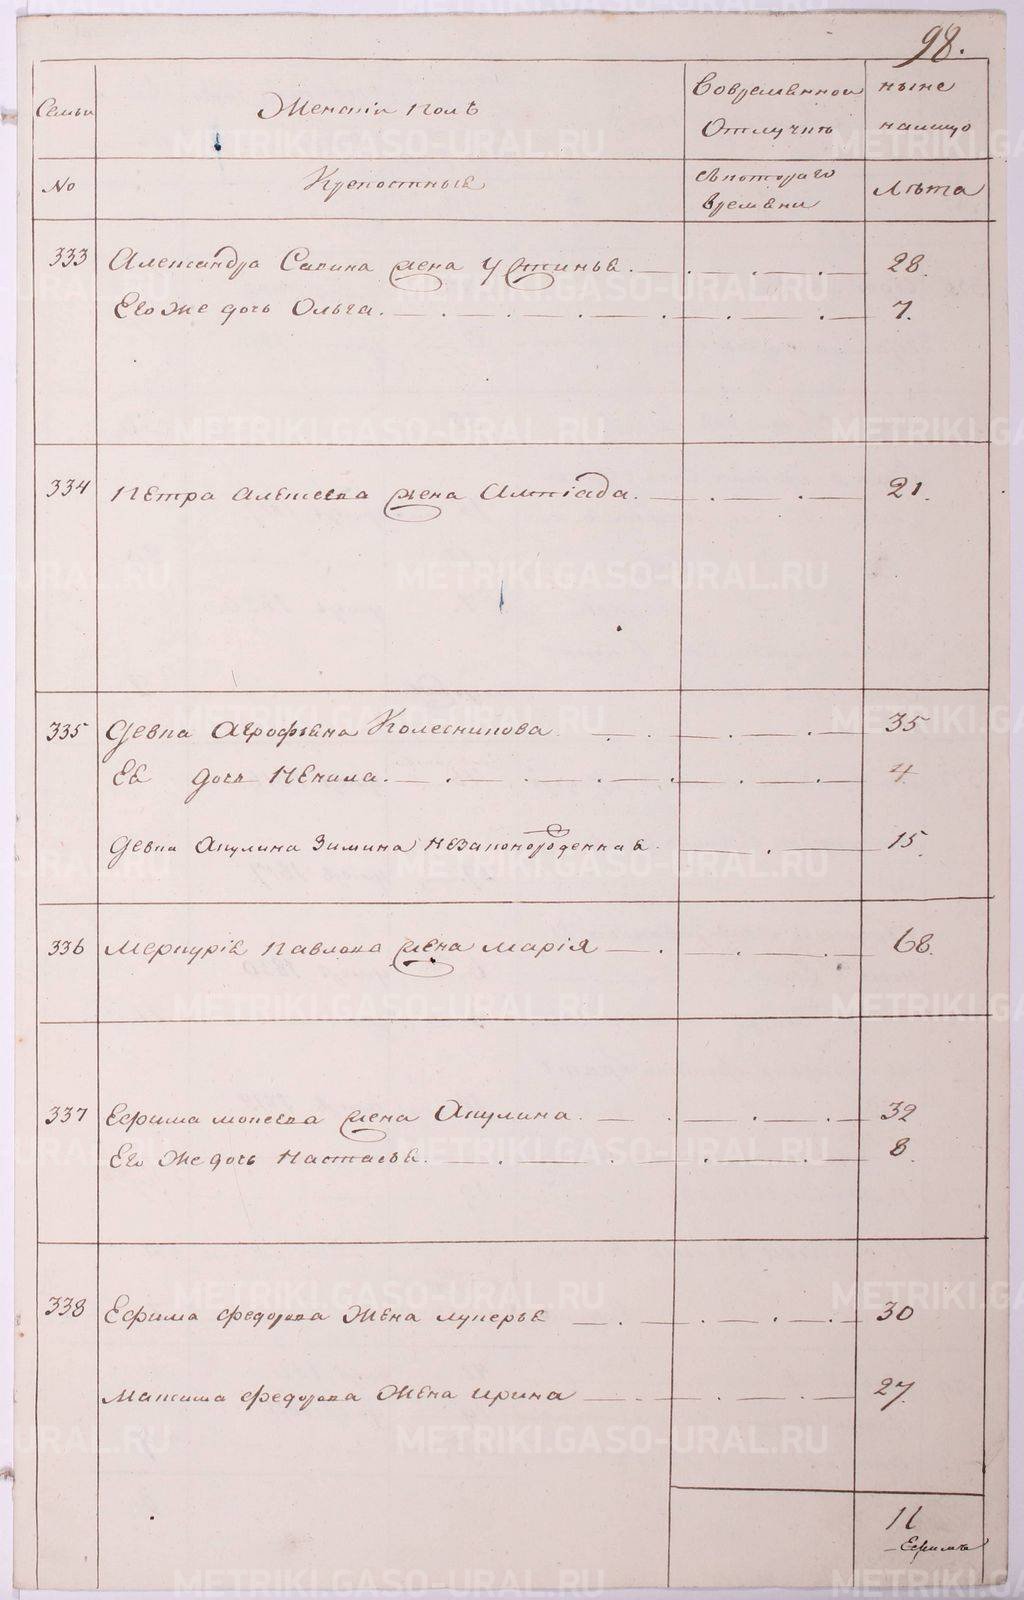 98.
Семьи
Женскій полъ
Во временной
отлучкѣ
ныне
налицо
No
Крепостныя
съ котораго
времени
Лѣта
333 Александра Савина жена Устинья. 28.
Его же дочь Ольга. 7.
334 Петра Алексеева жена Олимпіада. 21.
335 Девка Агрофѣена Колесникова 35
Её дочь Ненила. 4
Девка Акулина Зимина незаконорожденная. 15
336 Меркурія Павлова жена Марія 68.
337 Ефима Мокеева жена Акулина. 32
Его же дочь Настасья. 8.
338 Ефима Федорова жена Лукерья 30
Максима Федорова жена Ирина 27.
11
METRIKI.GASO-URAL.RU